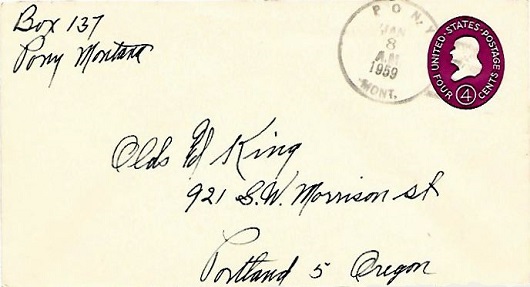 Box 137
Pony Montana
PONY
JAN
8
A.M.
1959
MONT.
UNITED STATES POSTAGE
FOUR 4 CENTS
Olds & King
921 S.W. Morrison st
Portland 5 Oregon